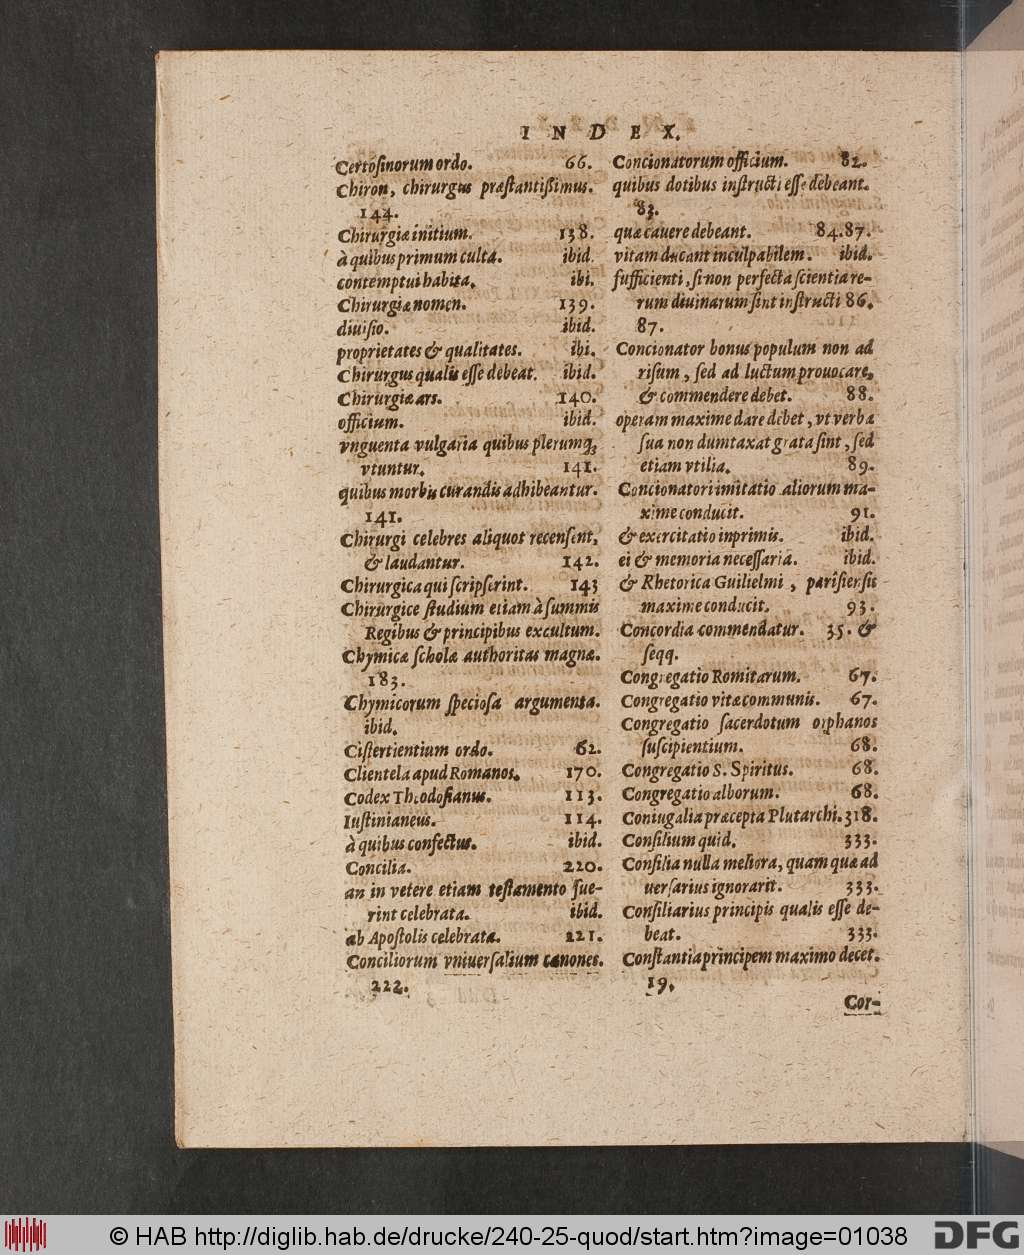 INDEX.
Certosinorum ordo. 66.
Chiron, chirurgus præstantissimus.
144.
Chirurgiæ initium. 138.
à quibus primum culta. ibid.
contemptui habita. ibi.
Chirurgiæ nomen. 139.
diuisio. ibid.
proprietates & qualitates. ibi.
Chirurgus qualis esse debeat. ibid.
Chirurgiæ ars. 140.
officium. ibid.
vnguenta vulgaria quibus plerumq;
vtuntur. 141.
quibus morbis curandis adhibeantur.
141.
Chirurgi celebres aliquot recensent,
& laudantur. 142.
Chirurgica qui scripserint. 143
Chirurgice studium etiam à summis
Regibus & principibus excultum.
Chymicæ scholæ authoritas magna.
183.
Chymicorum speciosa argumenta.
ibid.
Cistertientium ordo. 62.
Clientela apud Romanos. 170.
Codex Theodosianus. 113.
Iustinianeus. 114.
à quibus confectus. ibid.
Concilia. 220.
an in vetere etiam testamento fue-
rint celebrata. ibid.
ab Apostolis celebrata. 221.
Conciliorum vniuersalium canones.
222.
Concionatorum officium. 82.
quibus dotibus instructi esse debeant.
83.
quæ cauere debeant. 84.87.
vitam ducant inculpabilem. ibid.
sufficienti, si non perfecta scientia re-
rum diuinarum sint instructi 86.
87.
Concionator bonus populum non ad
risum, sed ad luctum prouocare,
& commendere debet. 88.
operam maxime dare debet, vt verba
sua non dumtaxat grata sint, sed
etiam vtilia. 89.
Concionatori imitatio aliorum ma-
xime conducit. 91.
& exercitatio inprimis. ibid.
ei & memoria necessaria. ibid.
& Rhetorica Guilielmi, parisiersis
maxime conducit. 93.
Concordia commendatur. 35. &
seqq.
Congregatio Romitarum. 67.
Congregatio vitæ communis. 67.
Congregatio sacerdotum orphanos
suscipientium. 68.
Congregatio S. Spiritus. 68.
Congregatio alborum. 68.
Coniugalia præcepta Plutarchi. 318.
Consilium quid. 333.
Consilia nulla meliora, quam quæ ad
uersarius ignorarit. 333.
Consiliarius principis qualis esse de-
beat. 333.
Constantia principem maximo decet.
19.
Cor-
© HAB http://diglib.hab.de/drucke/240-25-quod/start.htm?image=01038
DFG